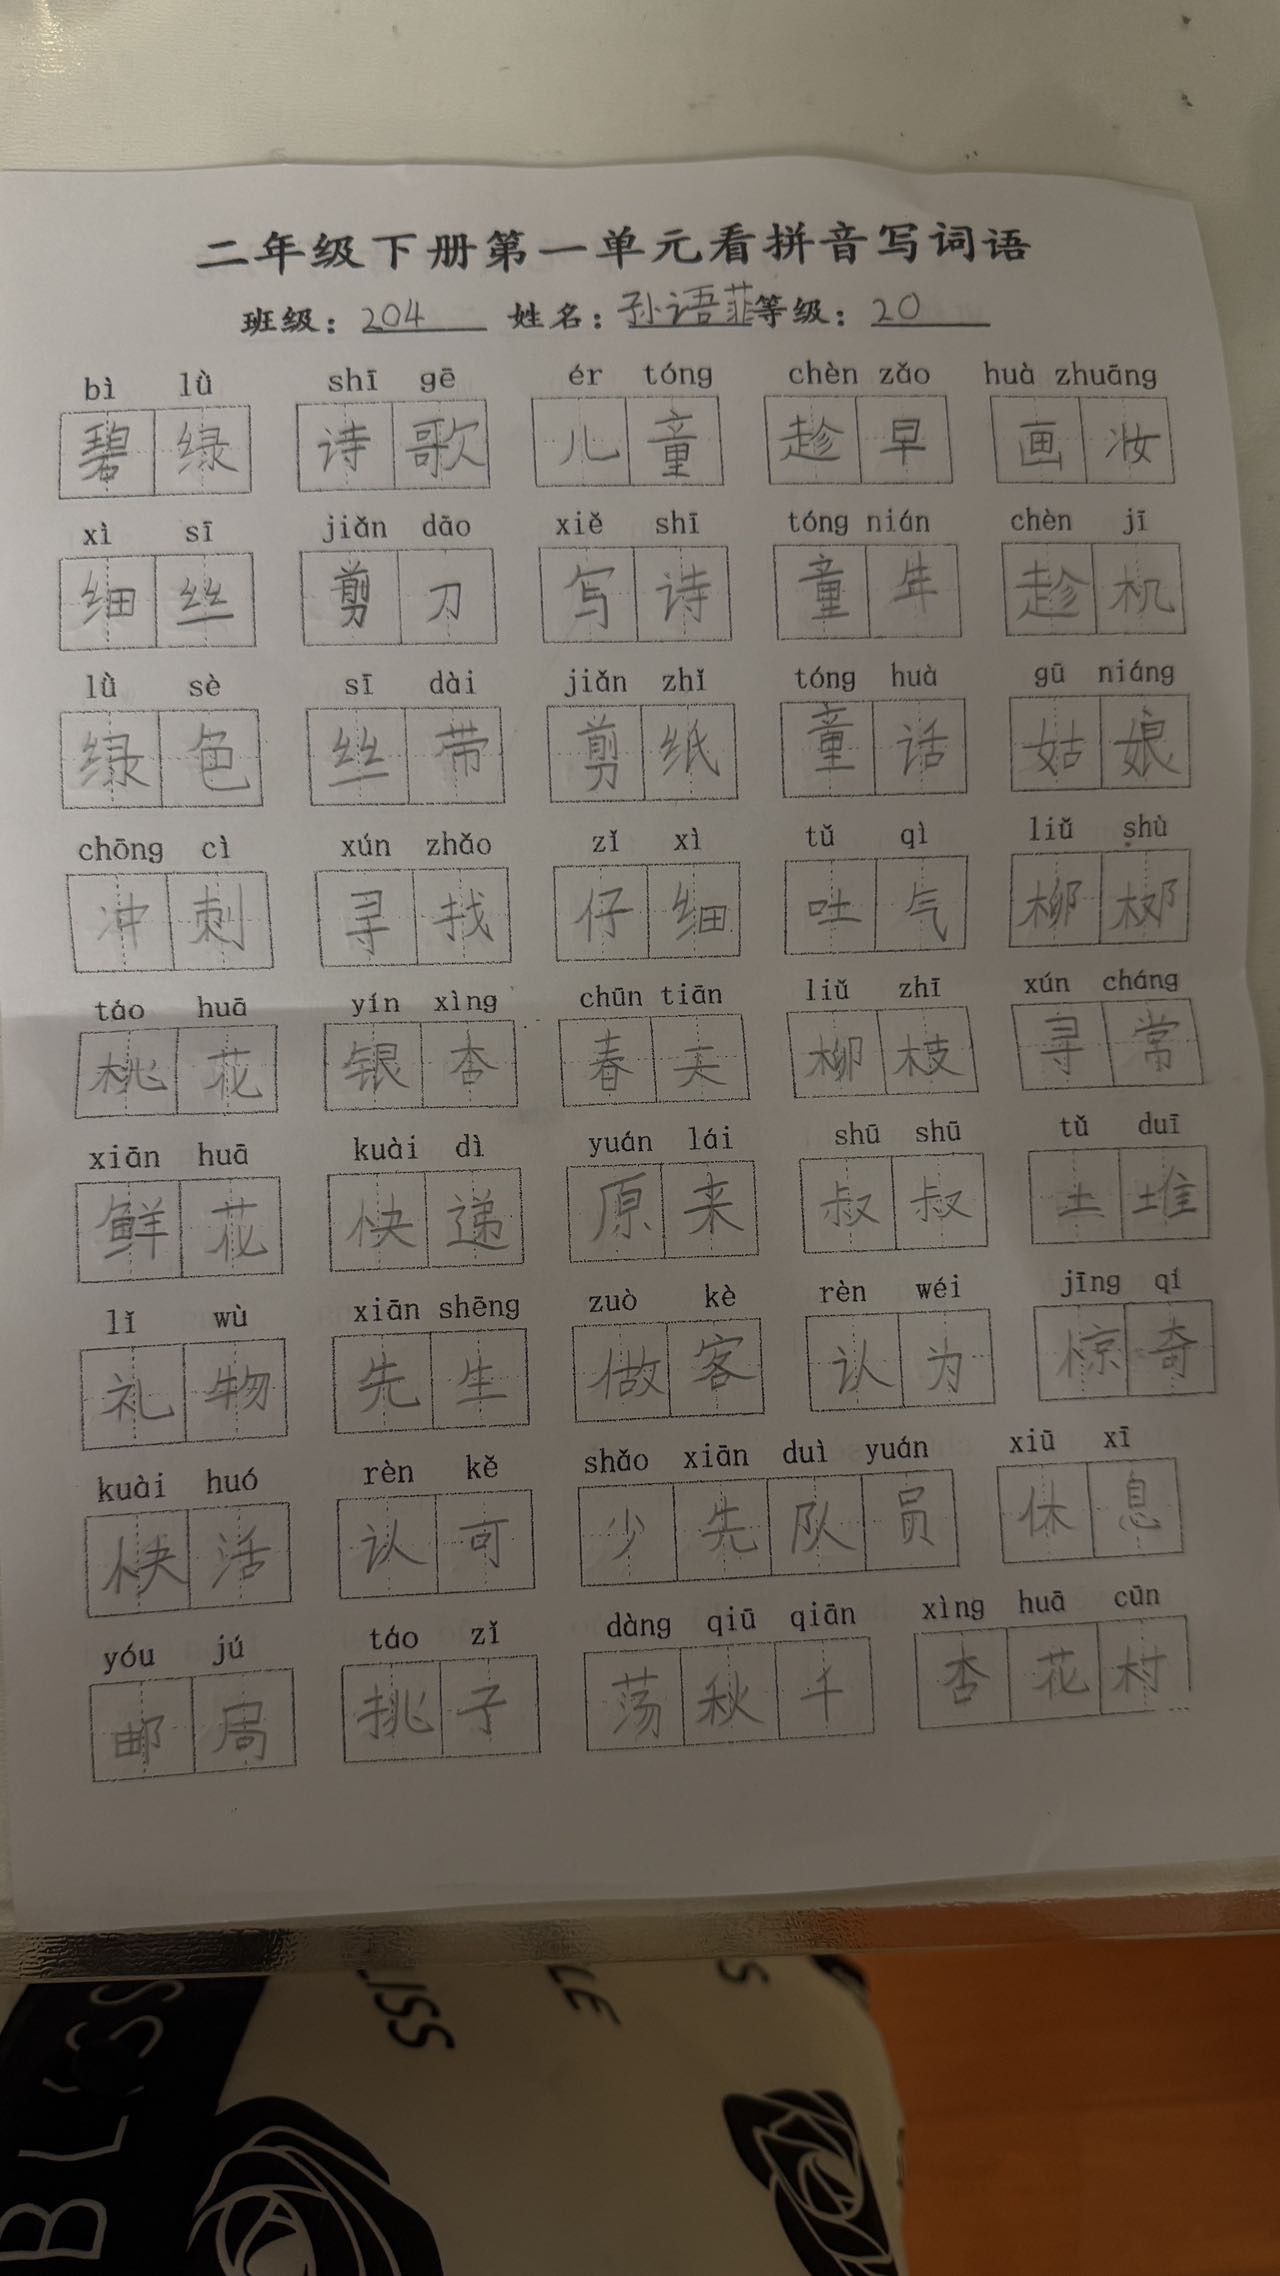 二年级下册第一单元看拼音写词语
班级：204 姓名：孙语菲 等级：20
bì lǜ shī gē ér tóng chèn zǎo huà zhuāng
碧绿 诗歌 儿童 趁早 画妆
xì sī jiǎn dāo xiě shī tóng nián chèn jī
细丝 剪刀 写诗 童年 趁机
lǜ sè sī dài jiǎn zhǐ tóng huà gū niáng
绿色 丝带 剪纸 童话 姑娘
chōng cì xún zhǎo zǐ xì tǔ qì liǔ shù
冲刺 寻找 仔细 吐气 柳
táo huā yín xìng chūn tiān liǔ zhī xún cháng
桃花 银杏 春天 柳枝 寻常
xiān huā kuài dì yuán lái shū shū tǔ duī
鲜花 快递 原来 叔叔 土堆
lǐ wù xiān shēng zuò kè rèn wéi jīng qí
礼物 先生 做客 认为 惊奇
kuài huó rèn kě shǎo xiān duì yuán xiū xī
快活 认可 少先队员 休息
yóu jú táo zǐ dàng qiū qiān xìng huā cūn
邮局 挑子 荡秋千 杏花村
BLISS
ISS
LE
S